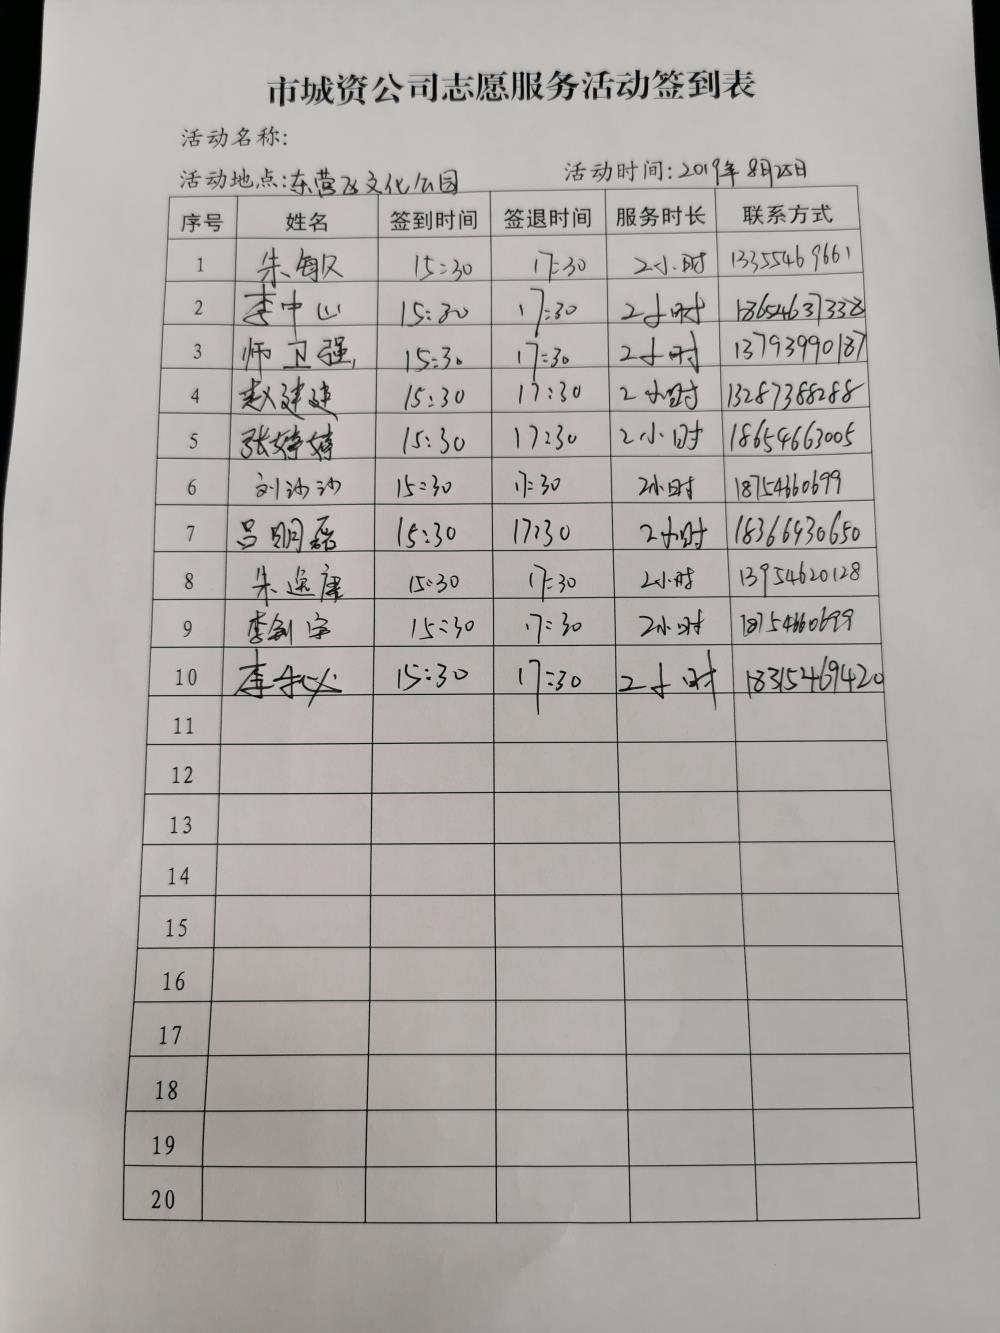 市城资公司志愿服务活动签到表
活动名称:
活动地点:东营区文化公园 活动时间:2019年8月25日
序号 姓名 签到时间 签退时间 服务时长 联系方式
1 朱敏 15:30 17:30 2小时 13355469661
2 李中山 15:30 17:30 2小时 18654637338
3 师卫强 15:30 17:30 2小时 13793990187
4 赵建建 15:30 17:30 2小时 13287388288
5 张婷婷 15:30 17:30 2小时 18654663005
6 刘沙沙 15:30 17:30 2小时 18754660699
7 吕明磊 15:30 17:30 2小时 18366930650
8 朱逸康 15:30 17:30 2小时 13954620128
9 李剑宇 15:30 17:30 2小时 18754660699
10 李 15:30 17:30 2小时 18315469420
11
12
13
14
15
16
17
18
19
20